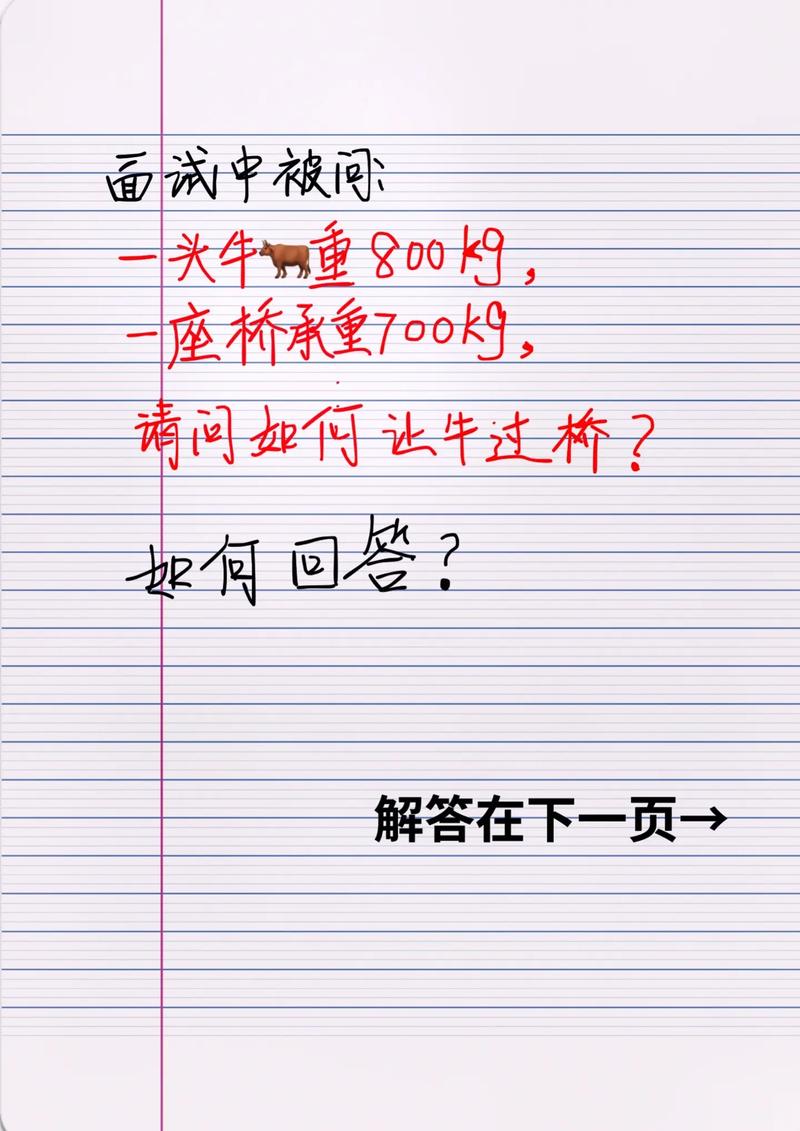 面试中被问:
一头牛🐂重800kg,
一座桥承重700kg,
请问如何让牛过桥?
如何回答?
解答在下一页→